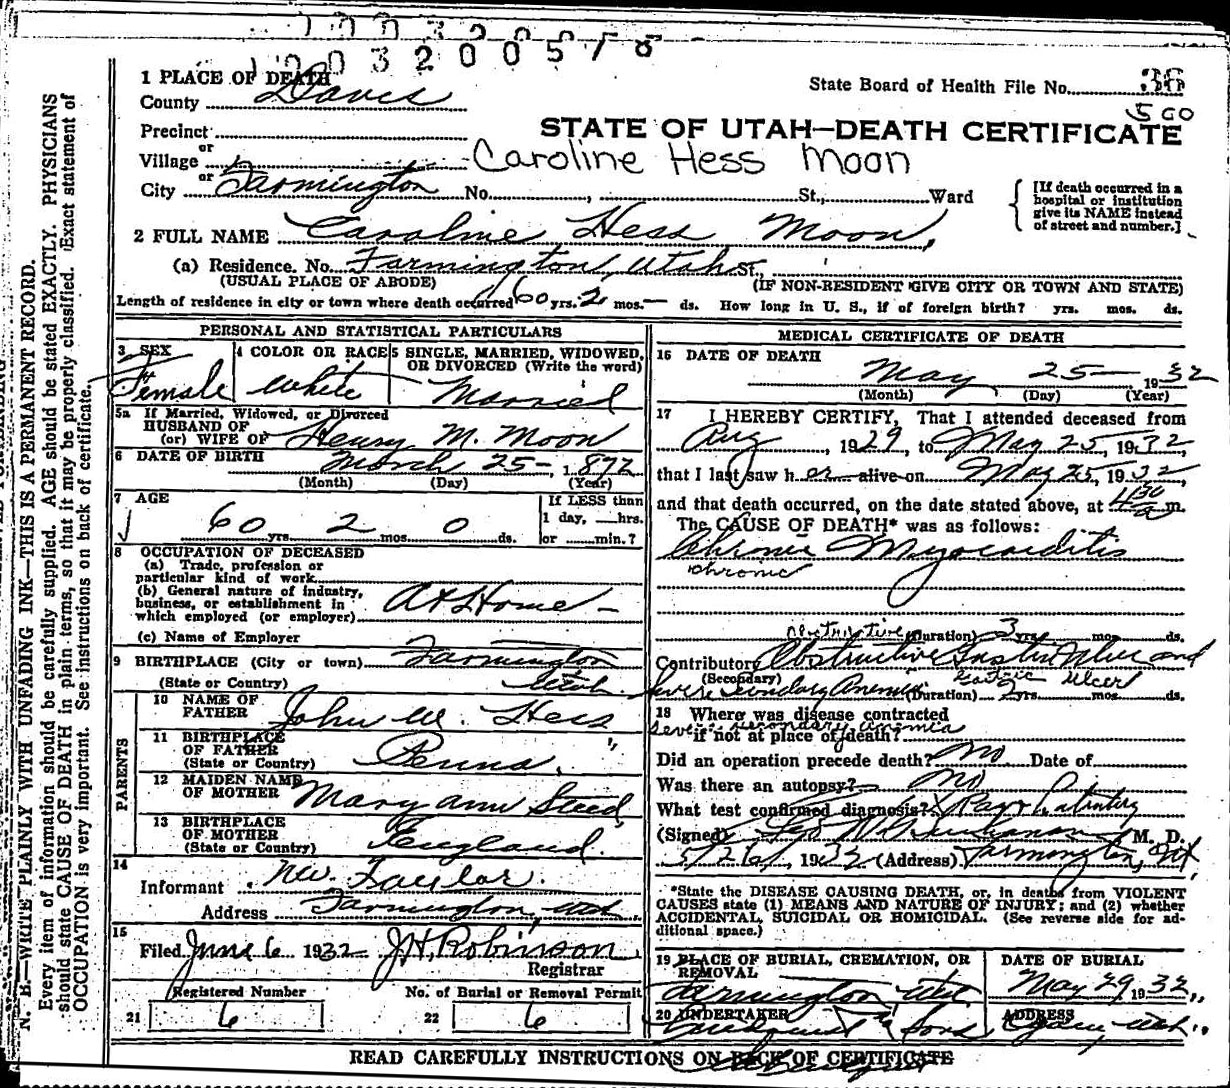 1 PLACE OF DEATH
State Board of Health File No. 36
County Davis
500
Precinct
STATE OF UTAH—DEATH CERTIFICATE
or
Village
Caroline Hess Moon
or
City Farmington No. , St., Ward
[If death occurred in a
hospital or institution
give its NAME instead
of street and number.]
2 FULL NAME Caroline Hess Moon,
(a) Residence. No. Farmington, Utah St.,
(USUAL PLACE OF ABODE) (IF NON-RESIDENT GIVE CITY OR TOWN AND STATE)
Length of residence in city or town where death occurred 60 yrs. 2 mos. — ds. How long in U. S., if of foreign birth? yrs. mos. ds.
PERSONAL AND STATISTICAL PARTICULARS
3 SEX
Female
4 COLOR OR RACE
White
5 SINGLE, MARRIED, WIDOWED,
OR DIVORCED (Write the word)
Married
5a If Married, Widowed, or Divorced
HUSBAND OF
(or) WIFE OF Henry M. Moon
6 DATE OF BIRTH March 25— , 1872
(Month) (Day) (Year)
7 AGE
60 yrs. 2 mos. 0 ds.
If LESS than
1 day, hrs.
or min.?
8 OCCUPATION OF DECEASED
(a) Trade, profession or
particular kind of work
(b) General nature of industry,
business, or establishment in
which employed (or employer)
At Home —
(c) Name of Employer
9 BIRTHPLACE (City or town) Farmington
(State or Country) Utah
PARENTS
10 NAME OF
FATHER John W. Hess
11 BIRTHPLACE
OF FATHER
(State or Country) Penna.
12 MAIDEN NAME
OF MOTHER Mary Ann Steed
13 BIRTHPLACE
OF MOTHER
(State or Country) England.
14
Informant
Address Farmington, Utah.
15
Filed June 6 1932 J.H. Robinson
Registrar
Registered Number No. of Burial or Removal Permit
21 6 22 6
MEDICAL CERTIFICATE OF DEATH
16 DATE OF DEATH
May 25— 1932
(Month) (Day) (Year)
17 I HEREBY CERTIFY, That I attended deceased from
Aug , 1929, to May 25, 1932,
that I last saw her alive on May 25, 1932,
and that death occurred, on the date stated above, at 11 30 a m.
The CAUSE OF DEATH* was as follows:
Chronic Myocarditis
chronic
(Duration) 3 yrs. mos. ds.
Contributory Obstructive Gastric Ulcer and
(Secondary) Gastric ulcer
Severe Secondary Anemia (Duration) 3 yrs. mos. ds.
18 Where was disease contracted
severe secondary anemia
if not at place of death?
Did an operation precede death? No Date of
Was there an autopsy? No
What test confirmed diagnosis? X Ray
(Signed) M. D.
5/26/, 1932 (Address) Farmington, Ut,
*State the DISEASE CAUSING DEATH, or, in deaths from VIOLENT
CAUSES state (1) MEANS AND NATURE OF INJURY; and (2) whether
ACCIDENTAL, SUICIDAL OR HOMICIDAL. (See reverse side for ad-
ditional space.)
19 PLACE OF BURIAL, CREMATION, OR
REMOVAL
Farmington Utah
DATE OF BURIAL
May 29 1932,
20 UNDERTAKER
& Sons
ADDRESS
Ogden, Utah.
READ CAREFULLY INSTRUCTIONS ON BACK OF CERTIFICATE
N. B.—WRITE PLAINLY WITH UNFADING INK—THIS IS A PERMANENT RECORD.
Every item of information should be carefully supplied. AGE should be stated EXACTLY. PHYSICIANS
should state CAUSE OF DEATH in plain terms, so that it may be properly classified. Exact statement of
OCCUPATION is very important. See instructions on back of certificate.